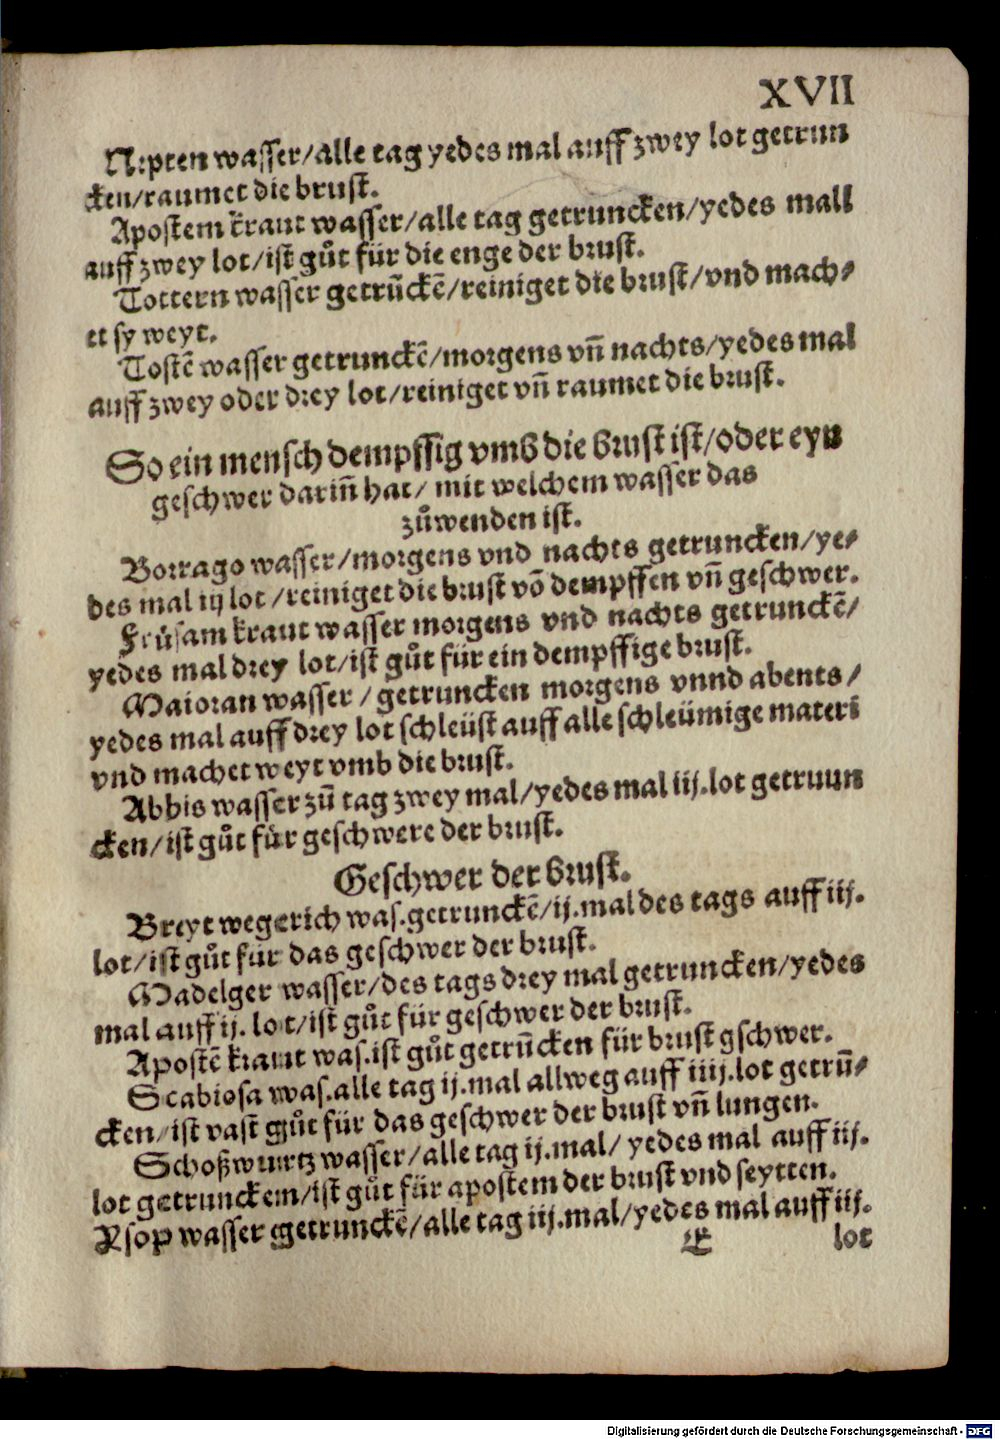 XVII
Nepten wasser/alle tag yedes mal auff zwey lot getrun
cken/raumet die brust.
Apostem kraut wasser/alle tag getruncken/yedes mall
auff zwey lot/ist gůt für die enge der brust.
Tottern wasser getrūckē/reiniget die brust/vnd mach-
et sy weyt.
Tostē wasser getrunckē/morgens vn̄ nachts/yedes mal
auff zwey oder drey lot/reiniget vn̄ raumet die brust.
So ein mensch dempffig vmb die brust ist/oder eyn
geschwer darin̄ hat/ mit welchem wasser das
zůwenden ist.
Borrago wasser/morgens vnd nachts getruncken/ye-
des mal iij lot/reiniget die brust vō dempffen vn̄ geschwer.
Früsam kraut wasser morgens vnd nachts getrunckē/
yedes mal drey lot/ist gůt für ein dempffige brust.
Maioran wasser/getruncken morgens vnnd abents/
yedes mal auff drey lot schleüst auff alle schleümige materi
vnd machet weyt vmb die brust.
Abbis wasser zů tag zwey mal/yedes mal iij.lot getruun
cken/ist gůt für geschwere der brust.
Geschwer der brust.
Breyt wegerich was.getrunckē/ij.mal des tags auff iij.
lot/ist gůt für das geschwer der brust.
Madelger wasser/des tags drey mal getruncken/yedes
mal auff ij. lot/ist gůt für geschwer der brust.
Apostē kraut was.ist gůt getrūcken für brust gschwer.
Scabiosa was.alle tag ij.mal allweg auff iiij.lot getrū-
cken/ist vast gůt für das geschwer der brust vn̄ lungen.
Schoßwurtz wasser/alle tag ij.mal/ yedes mal auff iij.
lot getrunckem/ist gůt für apostem der brust vnd seytten.
Ysop wasser getrunckē/alle tag iij.mal/yedes mal auff iij.
E lot
Digitalisierung gefördert durch die Deutsche Forschungsgemeinschaft - DFG